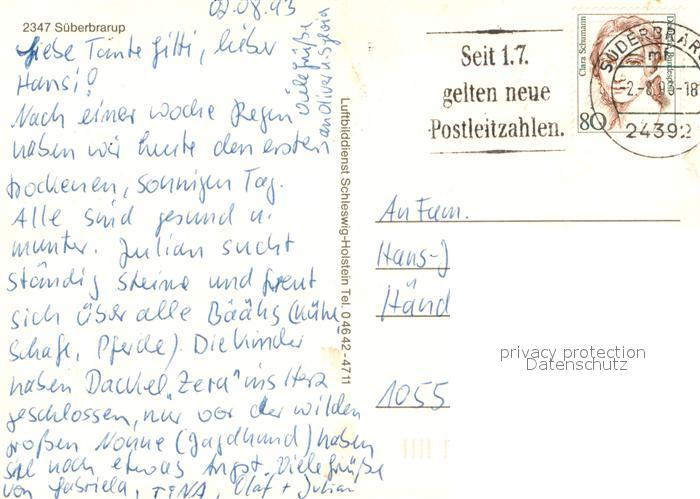 2347 Süberbrarup
02.08.93
Liebe Tante Gitti, lieber
Hansi!
Nach einer Woche Regen
haben wir heute den ersten
trockenen, sonnigen Tag.
Alle sind gesund u.
munter. Julian sucht
ständig Steine und freut
sich über alle Bäähs (Kühe,
Schafe, Pferde). Die Kinder
haben Dackel „Zera" ins Herz
geschlossen, nur vor der wilden
großen Nonne (Jagdhund) haben
sie noch etwas Angst. Viele Grüße
von Gabriela, TINA, Olaf + Julian
Viele Grüße
an Oliver u. Sylvia
Luftbilddienst Schleswig-Holstein Tel. 0 46 42 - 47 11
Seit 1.7.
gelten neue
Postleitzahlen.
Clara Schumann
80
SÜDERBRARUP
-2.-8.93-18
24392
An Fam.
Hans-J
Händ
1055
privacy protection
Datenschutz